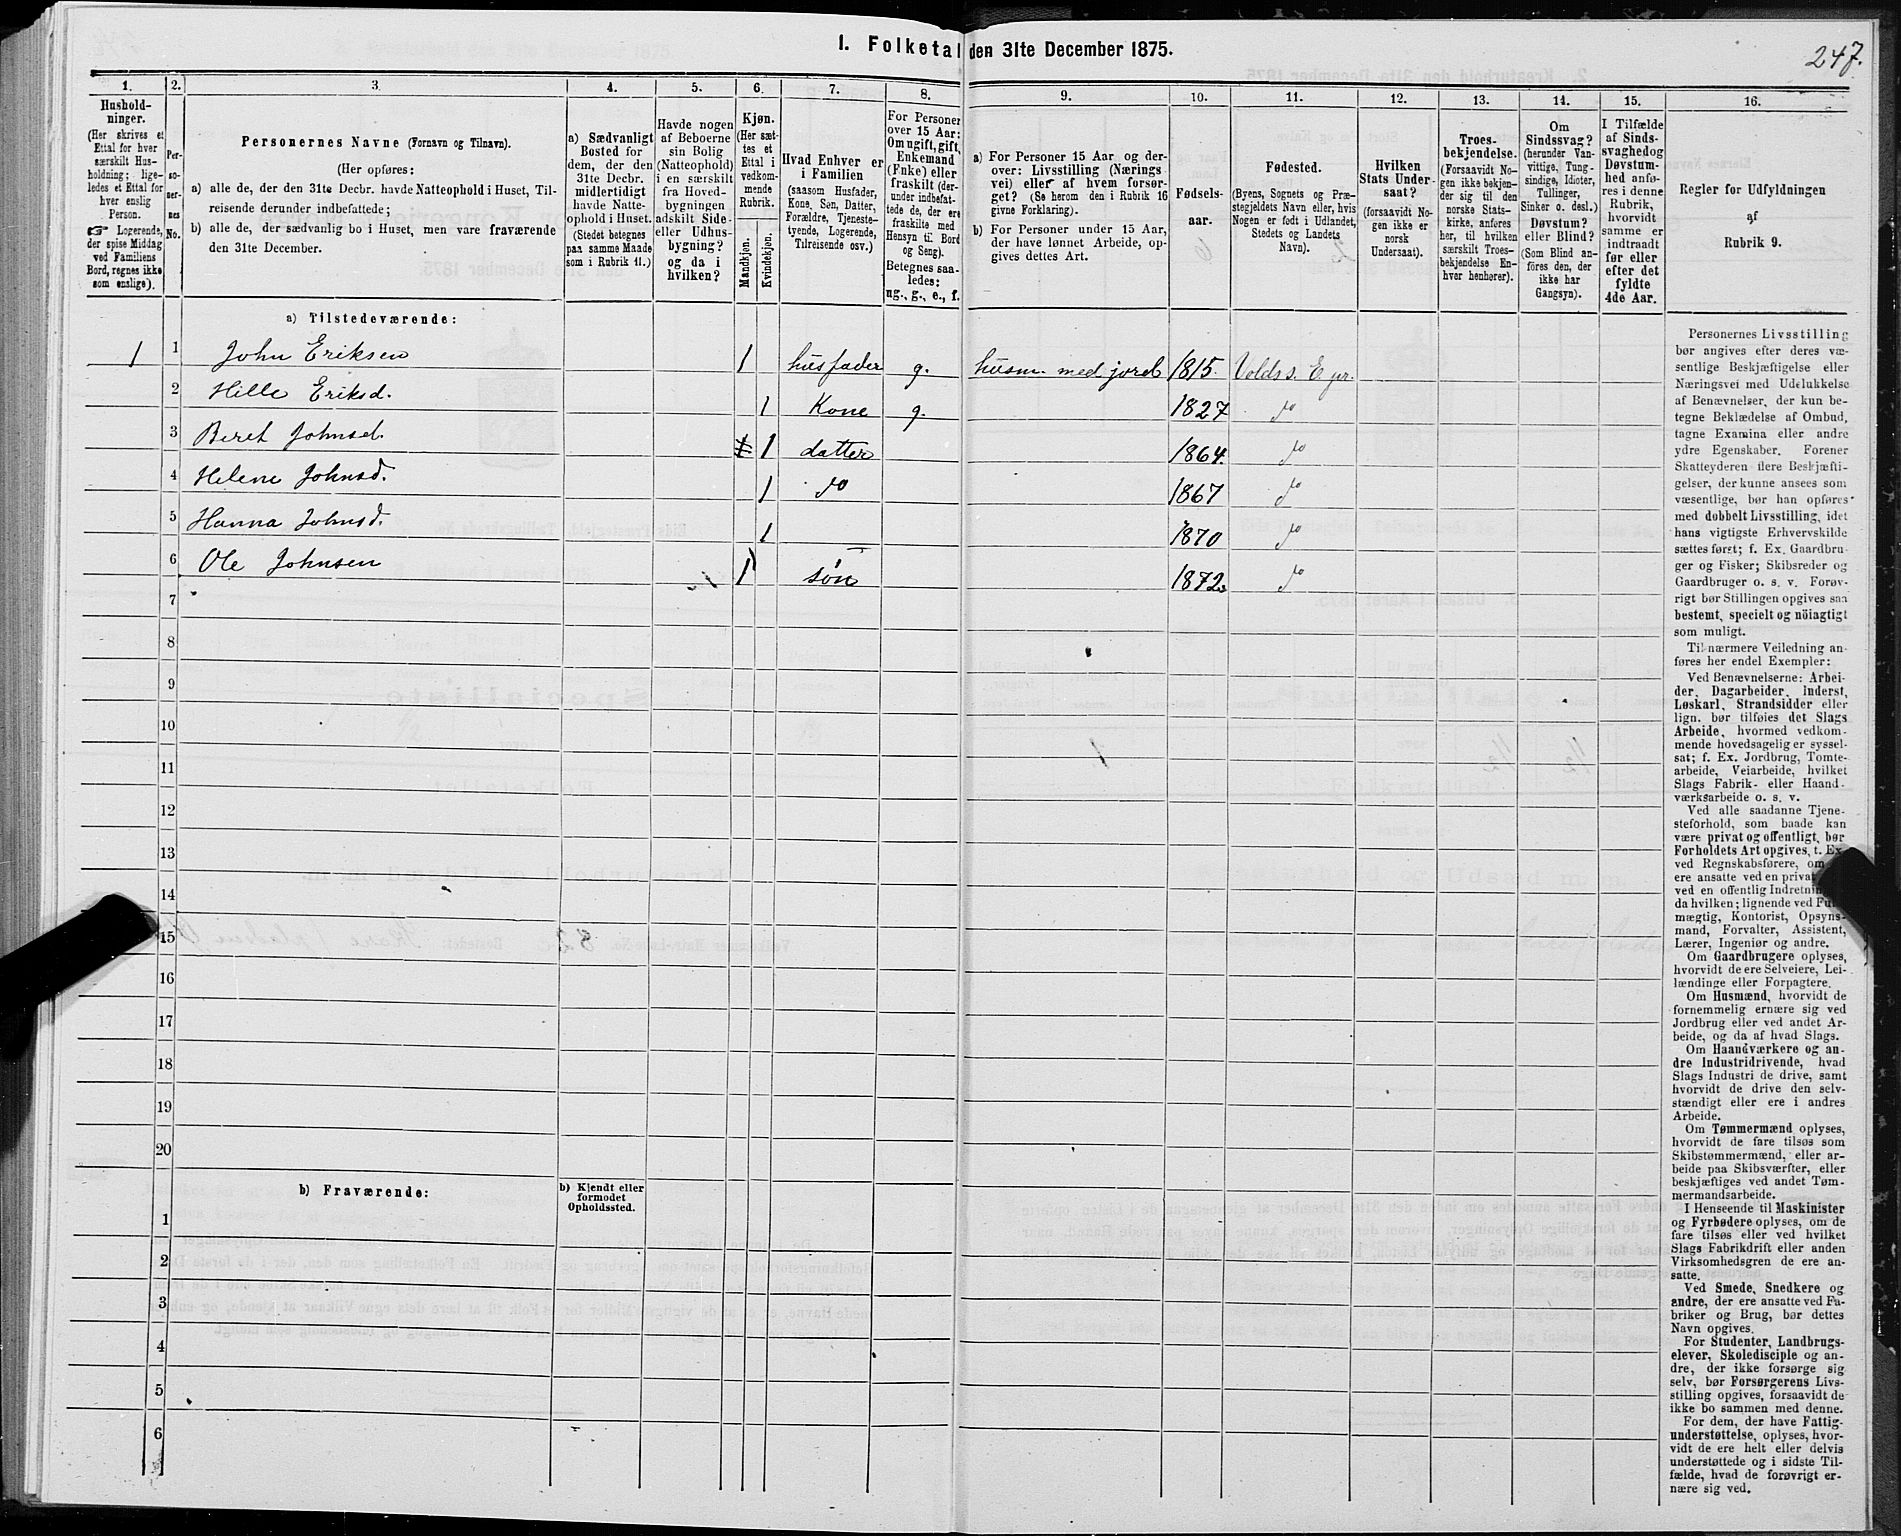 1. Folketal den 31te December 1875.
247.
1.
Hushold-
ninger.
(Her skrives et
Ettal for hver
særskilt Hus-
holdning; lige-
ledes et Ettal for
hver enslig
Person.
☞ Logerende,
der spise Middag
ved Familiens
Bord, regnes ikke
som enslige).
2.
Per-
so-
ner-
nes
No.
3.
Personernes Navne (Fornavn og Tilnavn).
(Her opføres:
a) alle de, der den 31te Decbr. havde Natteophold i Huset, Til-
reisende derunder indbefattede;
b) alle de, der sædvanlig bo i Huset, men vare fraværende
den 31te December.
4.
a) Sædvanligt
Bosted for
dem, der den
31te Decbr.
midlertidigt
havde Natte-
ophold i Huset.
(Stedet betegnes
paa samme Maade
som i Rubrik 11.)
5.
Havde nogen
af Beboerne
sin Bolig
(Natteophold)
i en særskilt
fra Hoved-
bygningen
adskilt Side-
eller Udhus-
bygning?
og da i
hvilken?
6.
Kjøn.
(Her sæt-
tes et
Ettal i
vedkom-
mende
Rubrik.
Mandkjøn.
Kvindekjøn.
7.
Hvad Enhver er
i Familien
(saasom Husfader,
Kone, Søn, Datter,
Forældre, Tjeneste-
tyende, Logerende,
Tilreisende osv.)
8.
For Personer
over 15 Aar:
Om ugift, gift,
Enkemand
(Enke) eller
fraskilt (der-
under indbefat-
tede de, der ere
fraskilte med
Hensyn til Bord
og Seng).
Betegnes saa-
ledes:
ug., g., e., f.
9.
a) For Personer 15 Aar og der-
over: Livsstilling (Nærings
vei) eller af hvem forsør-
get? (Se herom den i Rubrik 16
givne Forklaring).
b) For Personer under 15 Aar,
der have lønnet Arbeide, op-
gives dettes Art.
10.
Fødsels-
aar.
11.
Fødested.
(Byens, Sognets og Præ-
stegjeldets Navn eller, hvis
Nogen er født i Udlandet,
Stedets og Landets
Navn).
12.
Hvilken
Stats Under-
saat?
(forsaavidt No-
gen ikke er
norsk
Undersaat).
13.
Troes-
bekjendelse.
(Forsaavidt No-
gen ikke bekjen-
der sig til den
norske Stats-
kirke, anføres
her, til hvilken
særskilt Troes-
bekjendelse En-
hver henhører).
14.
Om
Sindssvag?
(herunder Van-
vittige, Tung-
sindige, Idioter,
Tullinger,
Sinker o. desl.)
Døvstum?
eller Blind?
(Som Blind an-
føres den, der
ikke har
Gangsyn).
15.
I Tilfælde
af Sinds-
svaghed og
Døvstum-
hed anfø-
res i denne
Rubrik,
hvorvidt
samme er
indtraadt
før eller
efter det
fyldte
4de Aar.
16.
Regler for Udfyldningen
af
Rubrik 9.
a) Tilstedeværende:
1 1 John Eriksen 1 husfader g. husm. med jord 1815. Volds s. E. pr.
2 Hille Eriksd. 1 Kone g. 1827 do
3 Beret Johnsd. 1 datter 1864. do
4 Helene Johnsd. 1 do 1867 do
5 Hanna Johnsd. 1 1870 do
6 Ole Johnsen 1 søn 1872. do
7
8
9
10
11
12
13
14
15
16
17
18
19
20
b) Fraværende:
b) Kjendt eller
formodet
Opholdssted.
1
2
3
4
5
6
Personernes Livsstilling
bør angives efter deres væ-
sentlige Beskjæftigelse eller
Næringsvei med Udelukkelse
af Benævnelser, der kun be-
tegne Beklædelse af Ombud,
tagne Examina eller andre
ydre Egenskaber. Forener
Skatteyderen flere Beskjæfti-
gelser, der kunne ansees som
væsentlige, bør han opføres
med dobbelt Livsstilling, idet
hans vigtigste Erhvervskilde
sættes først; f. Ex. Gaardbru-
ger og Fisker; Skibsreder og
Gaardbruger o. s. v. Forøv-
rigt bør Stillingen opgives saa
bestemt, specielt og nöiagtigt
som muligt.
Til nærmere Veiledning an-
føres her endel Exempler:
Ved Benævnelserne: Arbei-
der, Dagarbeider, Inderst,
Løskarl, Strandsidder eller
lign. bør tilføies det Slags
Arbeide, hvormed vedkom-
mende hovedsagelig er syssel-
sat; f. Ex. Jordbrug, Tomte-
arbeide, Veiarbeide, hvilket
Slags Fabrik- eller Haand-
værksarbeide o. s. v.
Ved alle saadanne Tjene-
steforhold, som baade kan
være privat og offentligt, bør
Forholdets Art opgives, t. Ex.
ved Regnskabsførere, om
ere ansatte ved en privat
ved en offentlig Indretnin
da hvilken; lignende ved Fuld
mægtig, Kontorist, Opsyns-
mand, Forvalter, Assistent,
Lærer, Ingeniør og andre.
Om Gaardbrugere oplyses,
hvorvidt de ere Selveiere, Lei-
lændinge eller Forpagtere.
Om Husmænd, hvorvidt de
fornemmelig ernære sig ved
Jordbrug eller ved andet Ar-
beide, og da af hvad Slags.
Om Haandværkere og an-
dre Industridrivende, hvad
Slags Industri de drive, samt
hvorvidt de drive den selv-
stændigt eller ere i andres
Arbeide.
Om Tømmermænd oplyses,
hvorvidt de fare tilsøs som
Skibstømmermænd, eller ar-
beide paa Skibsværfter, eller
beskjæftiges ved andet Tøm-
mermandsarbeide.
I Henseende til Maskinister
og Fyrbødere oplyses, om de
fare tilsøs eller ved hvilket
Slags Fabrikdrift eller anden
Virksomhedsgren de ere an-
satte.
Ved Smede, Snedkere og
andre, der ere ansatte ved Fa-
briker og Brug, bør dettes
Navn opgives.
For Studenter, Landbrugs-
elever, Skoledisciple og an-
dre, der ikke forsørge sig
selv, bør Forsørgerens Livs-
stilling opgives, forsaavidt de
ikke bo sammen med denne.
For dem, der have Fattig-
understøttelse, oplyses, hvor-
vidt de ere helt eller delvis
understøttede og i sidste Til-
fælde, hvad de forøvrigt er-
nære sig ved.